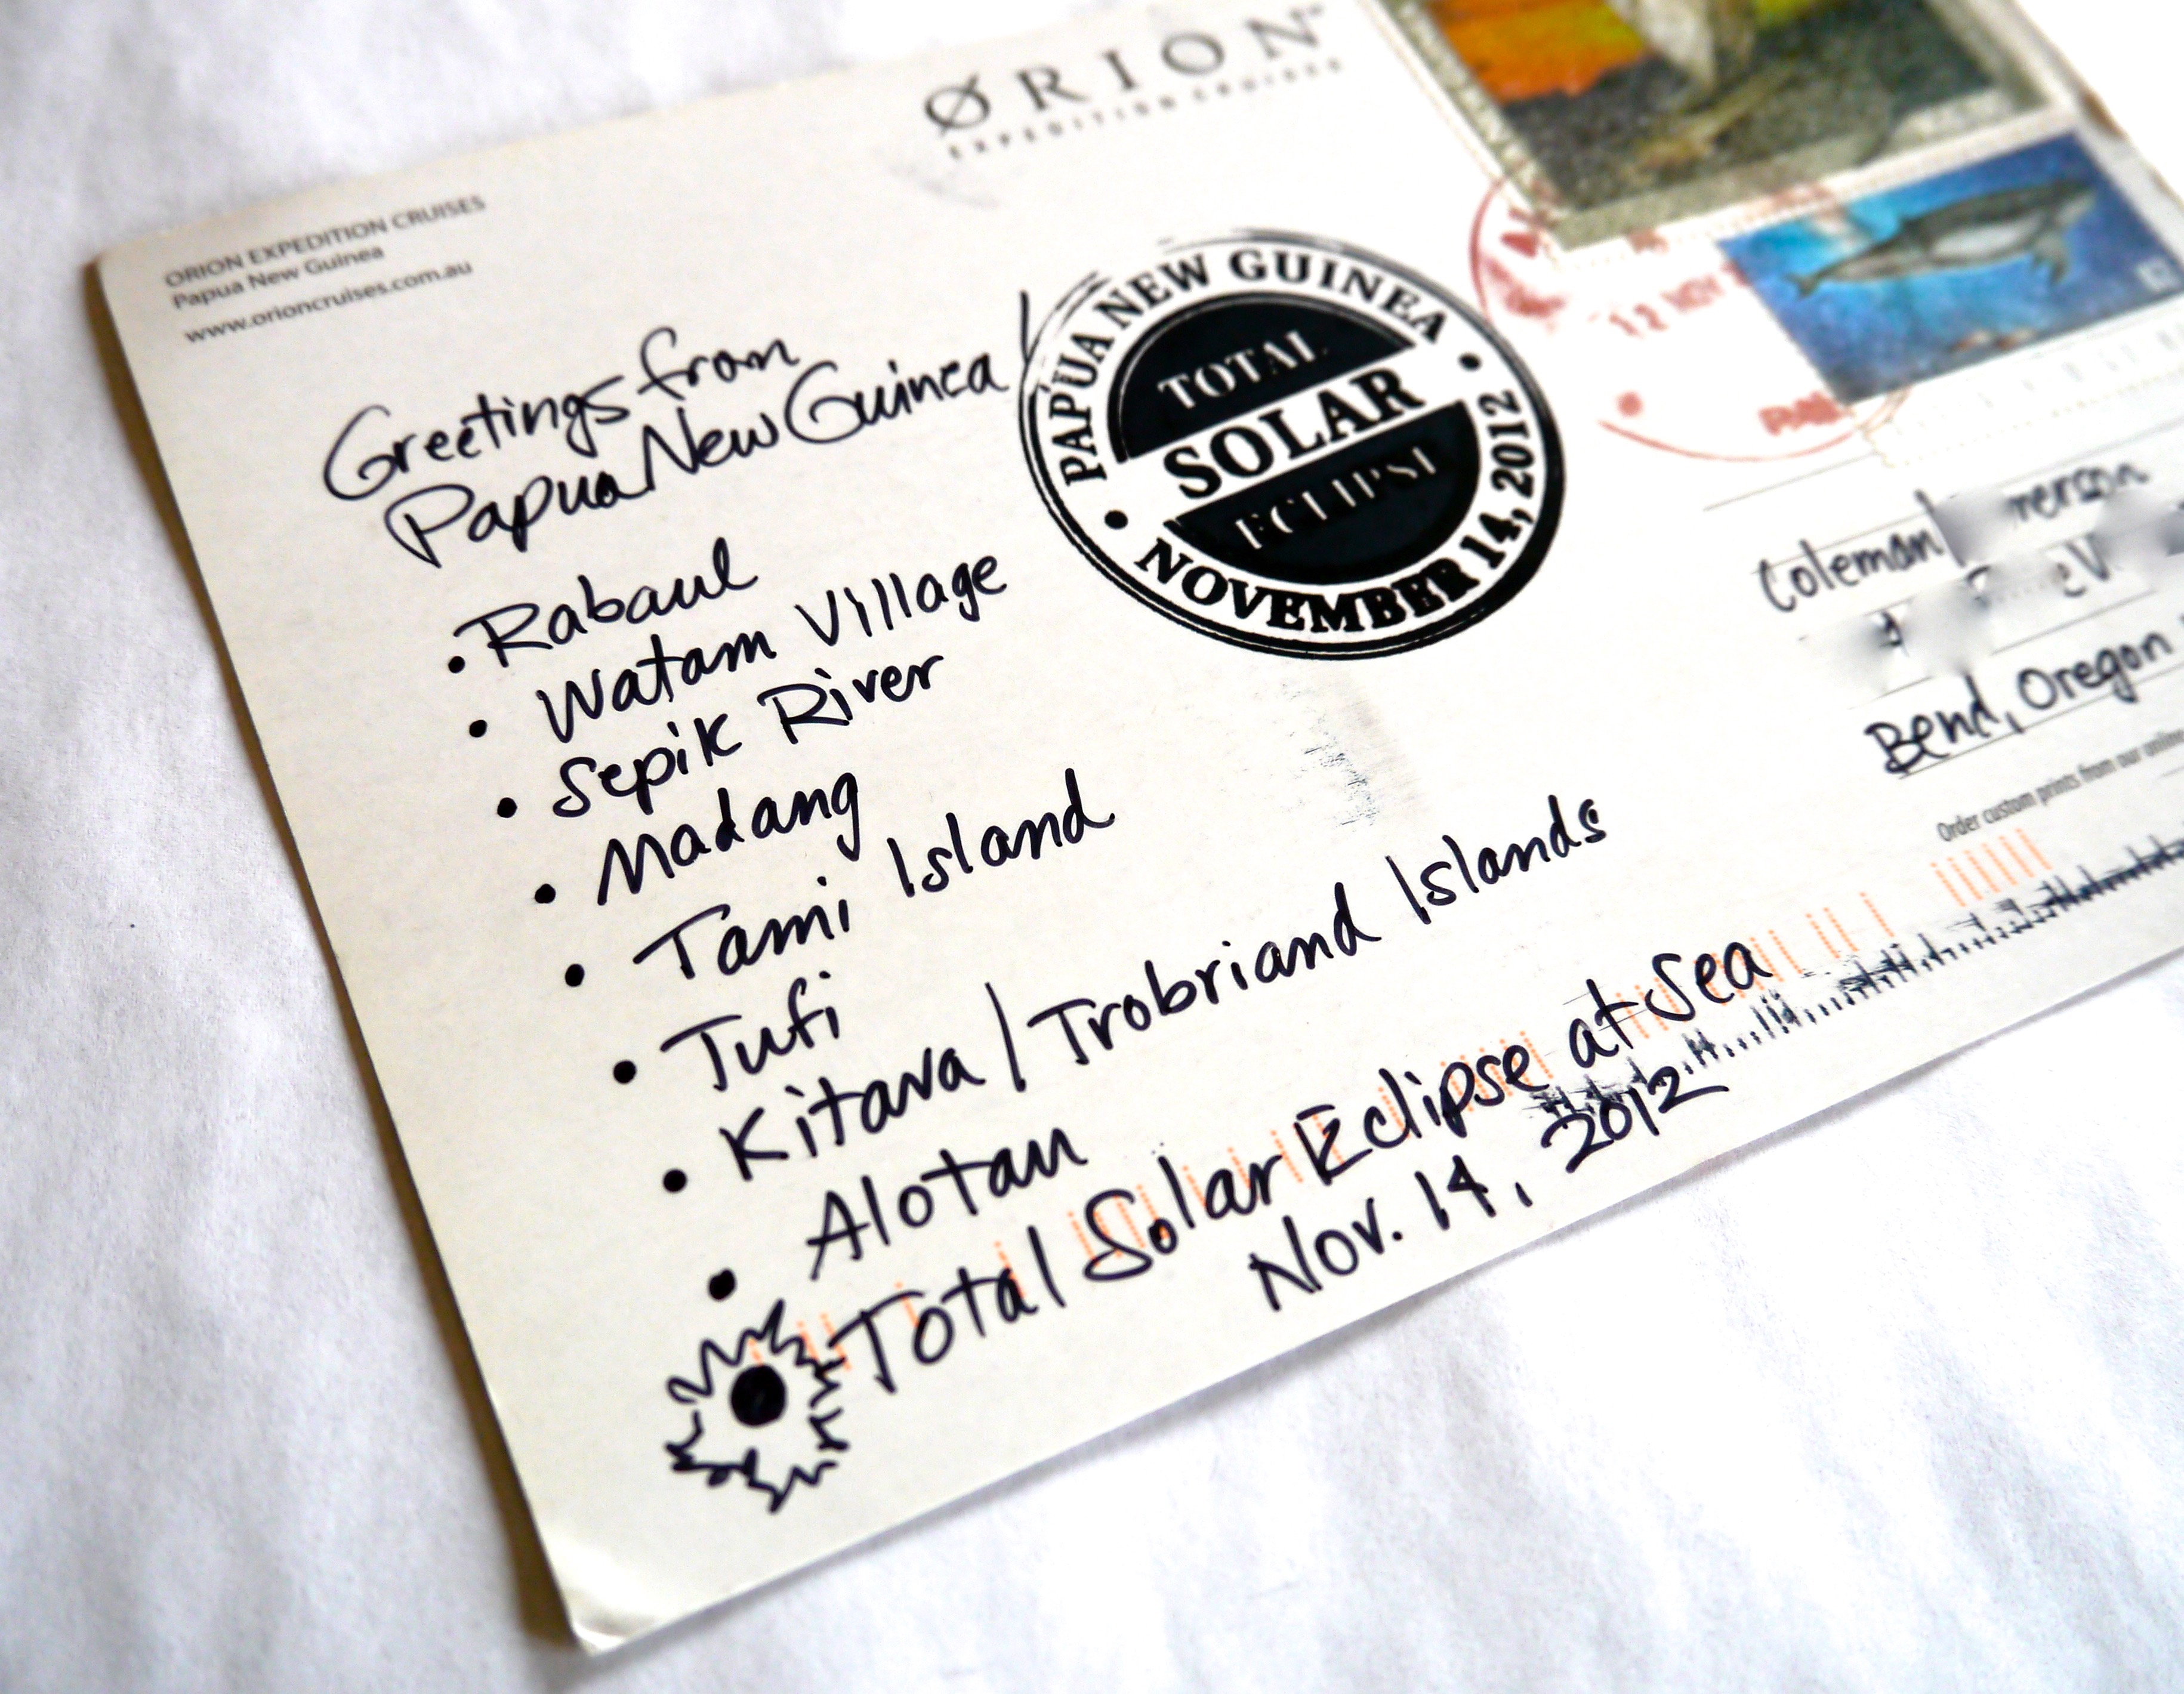 ORION
EXPEDITION CRUISES
ORION EXPEDITION CRUISES
Papua New Guinea
www.orioncruises.com.au
Greetings from
Papua New Guinea!
PAPUA NEW GUINEA
TOTAL
SOLAR
ECLIPSE
• NOVEMBER 14, 2012 •
12 NOV
• Rabaul
• Watam Village
• Sepik River
• Madang
• Tami Island
• Tufi
• Kitava / Trobriand Islands
• Alotau
Total Solar Eclipse at Sea
Nov. 14, 2012
Coleman
Bend, Oregon
Order custom prints from our online